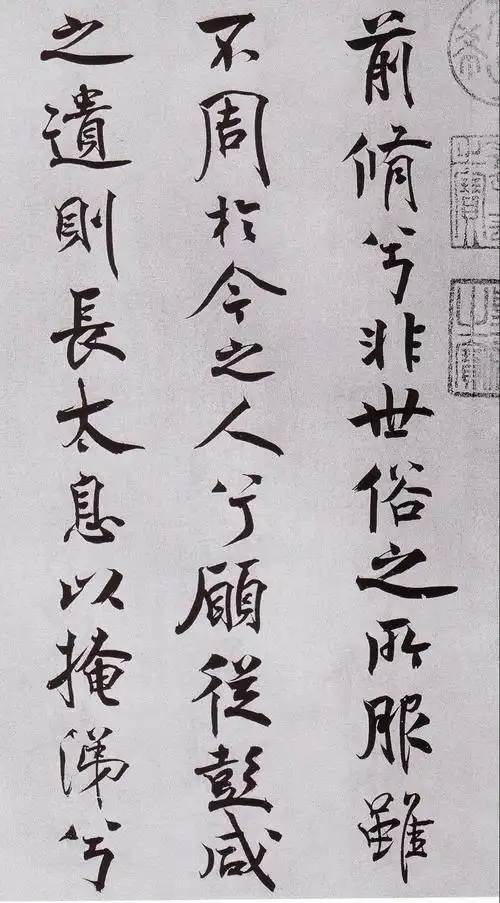 前脩兮非世俗之所服雖
不周於今之人兮願從彭咸
之遺則長太息以掩涕兮